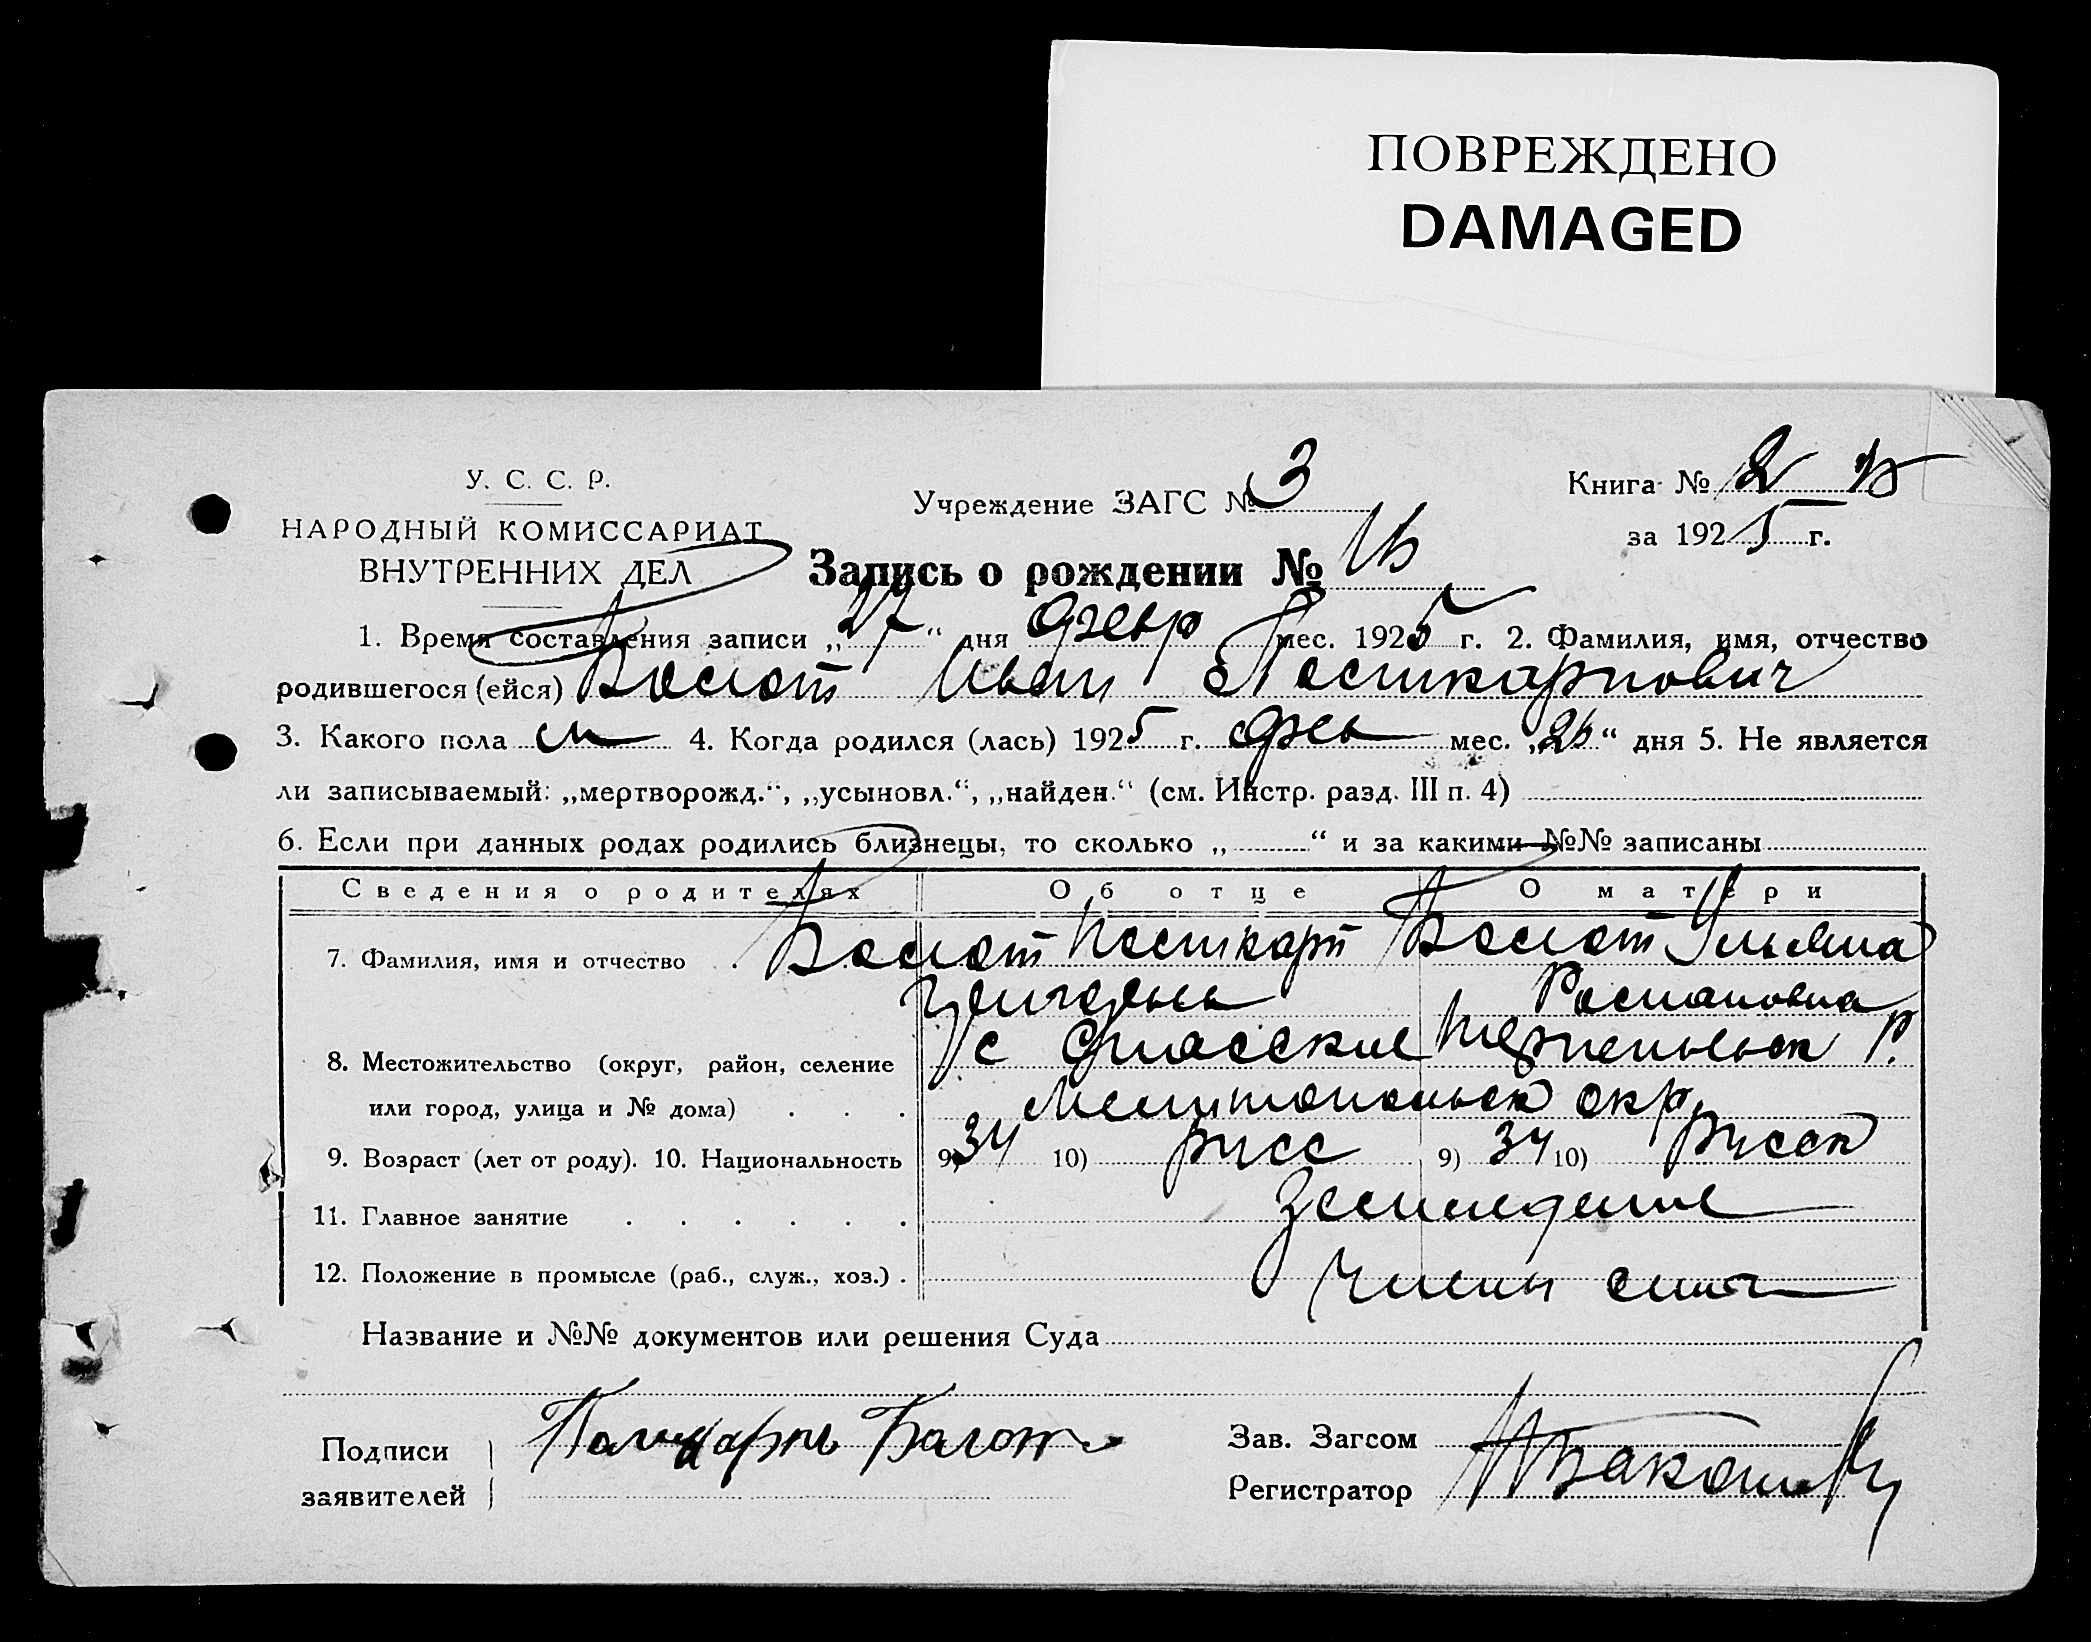 ПОВРЕЖДЕНО
DAMAGED
У. С. С. Р.
НАРОДНЫЙ КОМИССАРИАТ
ВНУТРЕННИХ ДЕЛ
Учреждение ЗАГС № 3
Книга № 2
за 1925 г.
Запись о рождении №
1. Время составления записи „27“ дня февр мес. 1925 г. 2. Фамилия, имя, отчество
родившегося (ейся) Болот Иван Поликарпович
3. Какого пола м 4. Когда родился (лась) 1925 г. фев мес. „26“ дня 5. Не является
ли записываемый: „мертворожд.“, „усыновл.“, „найден.“ (см. Инстр. разд. III п. 4)
6. Если при данных родах родились близнецы, то сколько „ “ и за какими №№ записаны
Сведения о родителях Об отце О матери
7. Фамилия, имя и отчество Болот Поликарп Болот Ульяна
Романовна
8. Местожительство (округ, район, селение с Спасское Р.
или город, улица и № дома) Мелитопольск окр
9. Возраст (лет от роду). 10. Национальность 9) 34 10) русс 9) 34 10) русск
11. Главное занятие Земледелие
12. Положение в промысле (раб., служ., хоз.) члены
Название и №№ документов или решения Суда
Подписи заявителей Поликарпъ Болот
Зав. Загсом
Регистратор